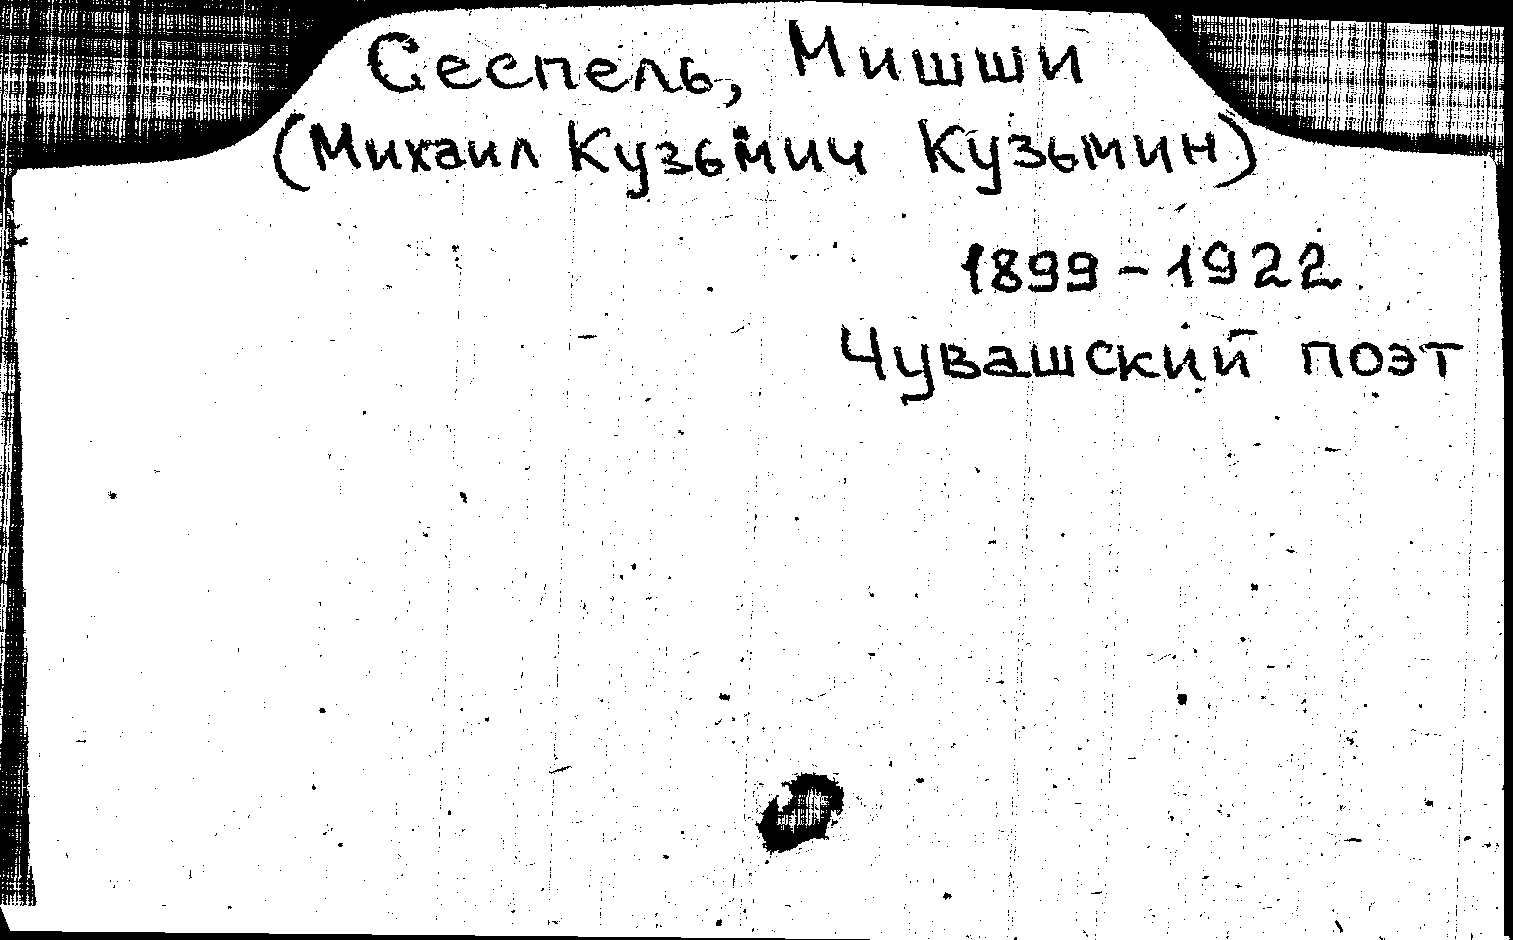 Сеспель, Мишши
(Михаил Кузьмич Кузьмин)
1899-1922
Чувашский поэт